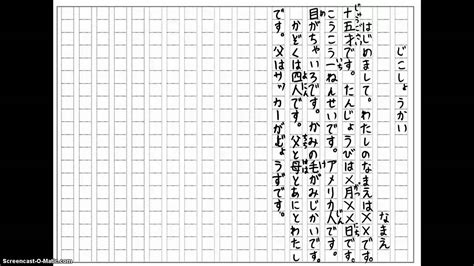 じこしょうかい
なまえ
はじめまして。わたしのなまえは××です。
十五才です。たんじょうびは××月××日です。
こうこう一ねんせいです。アメリカ人です。
目がちゃいろです。かみの毛がみじかいです。
かぞくは四人です。父と母とあにとわたし
です。父はサッカーがじょうずです。
Screencast-O-Matic.com